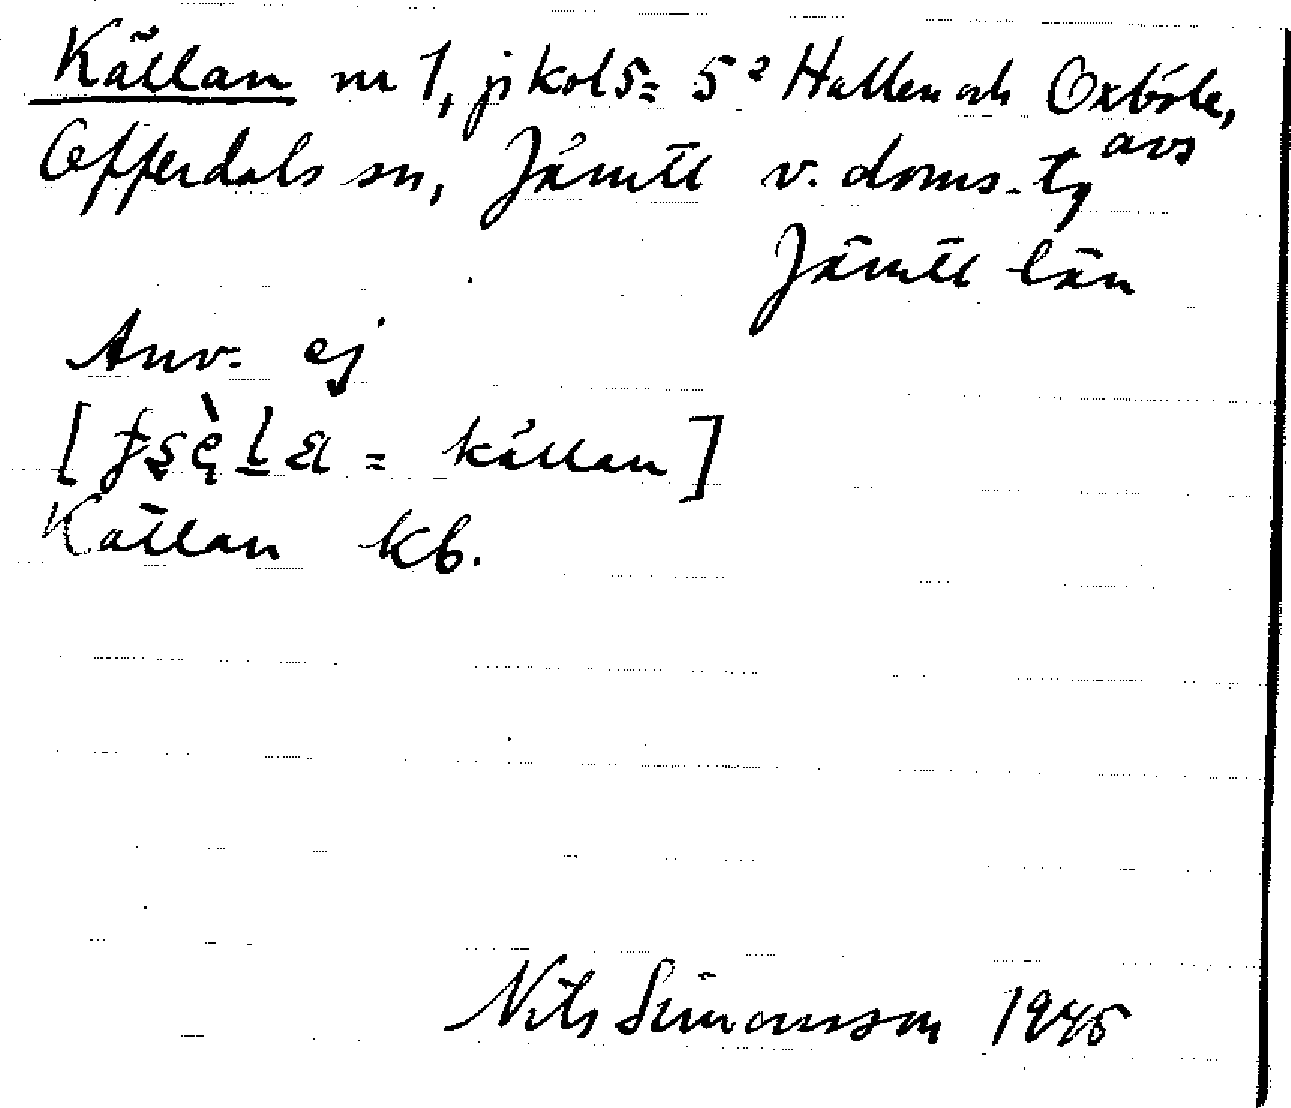 Källan nr 1, jfkol 5 = 5² Hallen och Oxböle,
Offerdals sn, Jämtl v. doms. tg avs
Jämtl län
Anv. ej
= källan]
Källan kb.
Nils Simonsson 1945